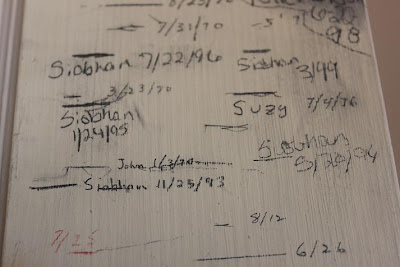 7/31/70
Siobhan 7/22/96
Siobhan
3/49
3/23/70
Siobhan
1/24/95
Suzy 7/4/76
Siobhan
5/20/94
John 1/3/70
Siobhan 11/25/93
8/12
7/25
6/26